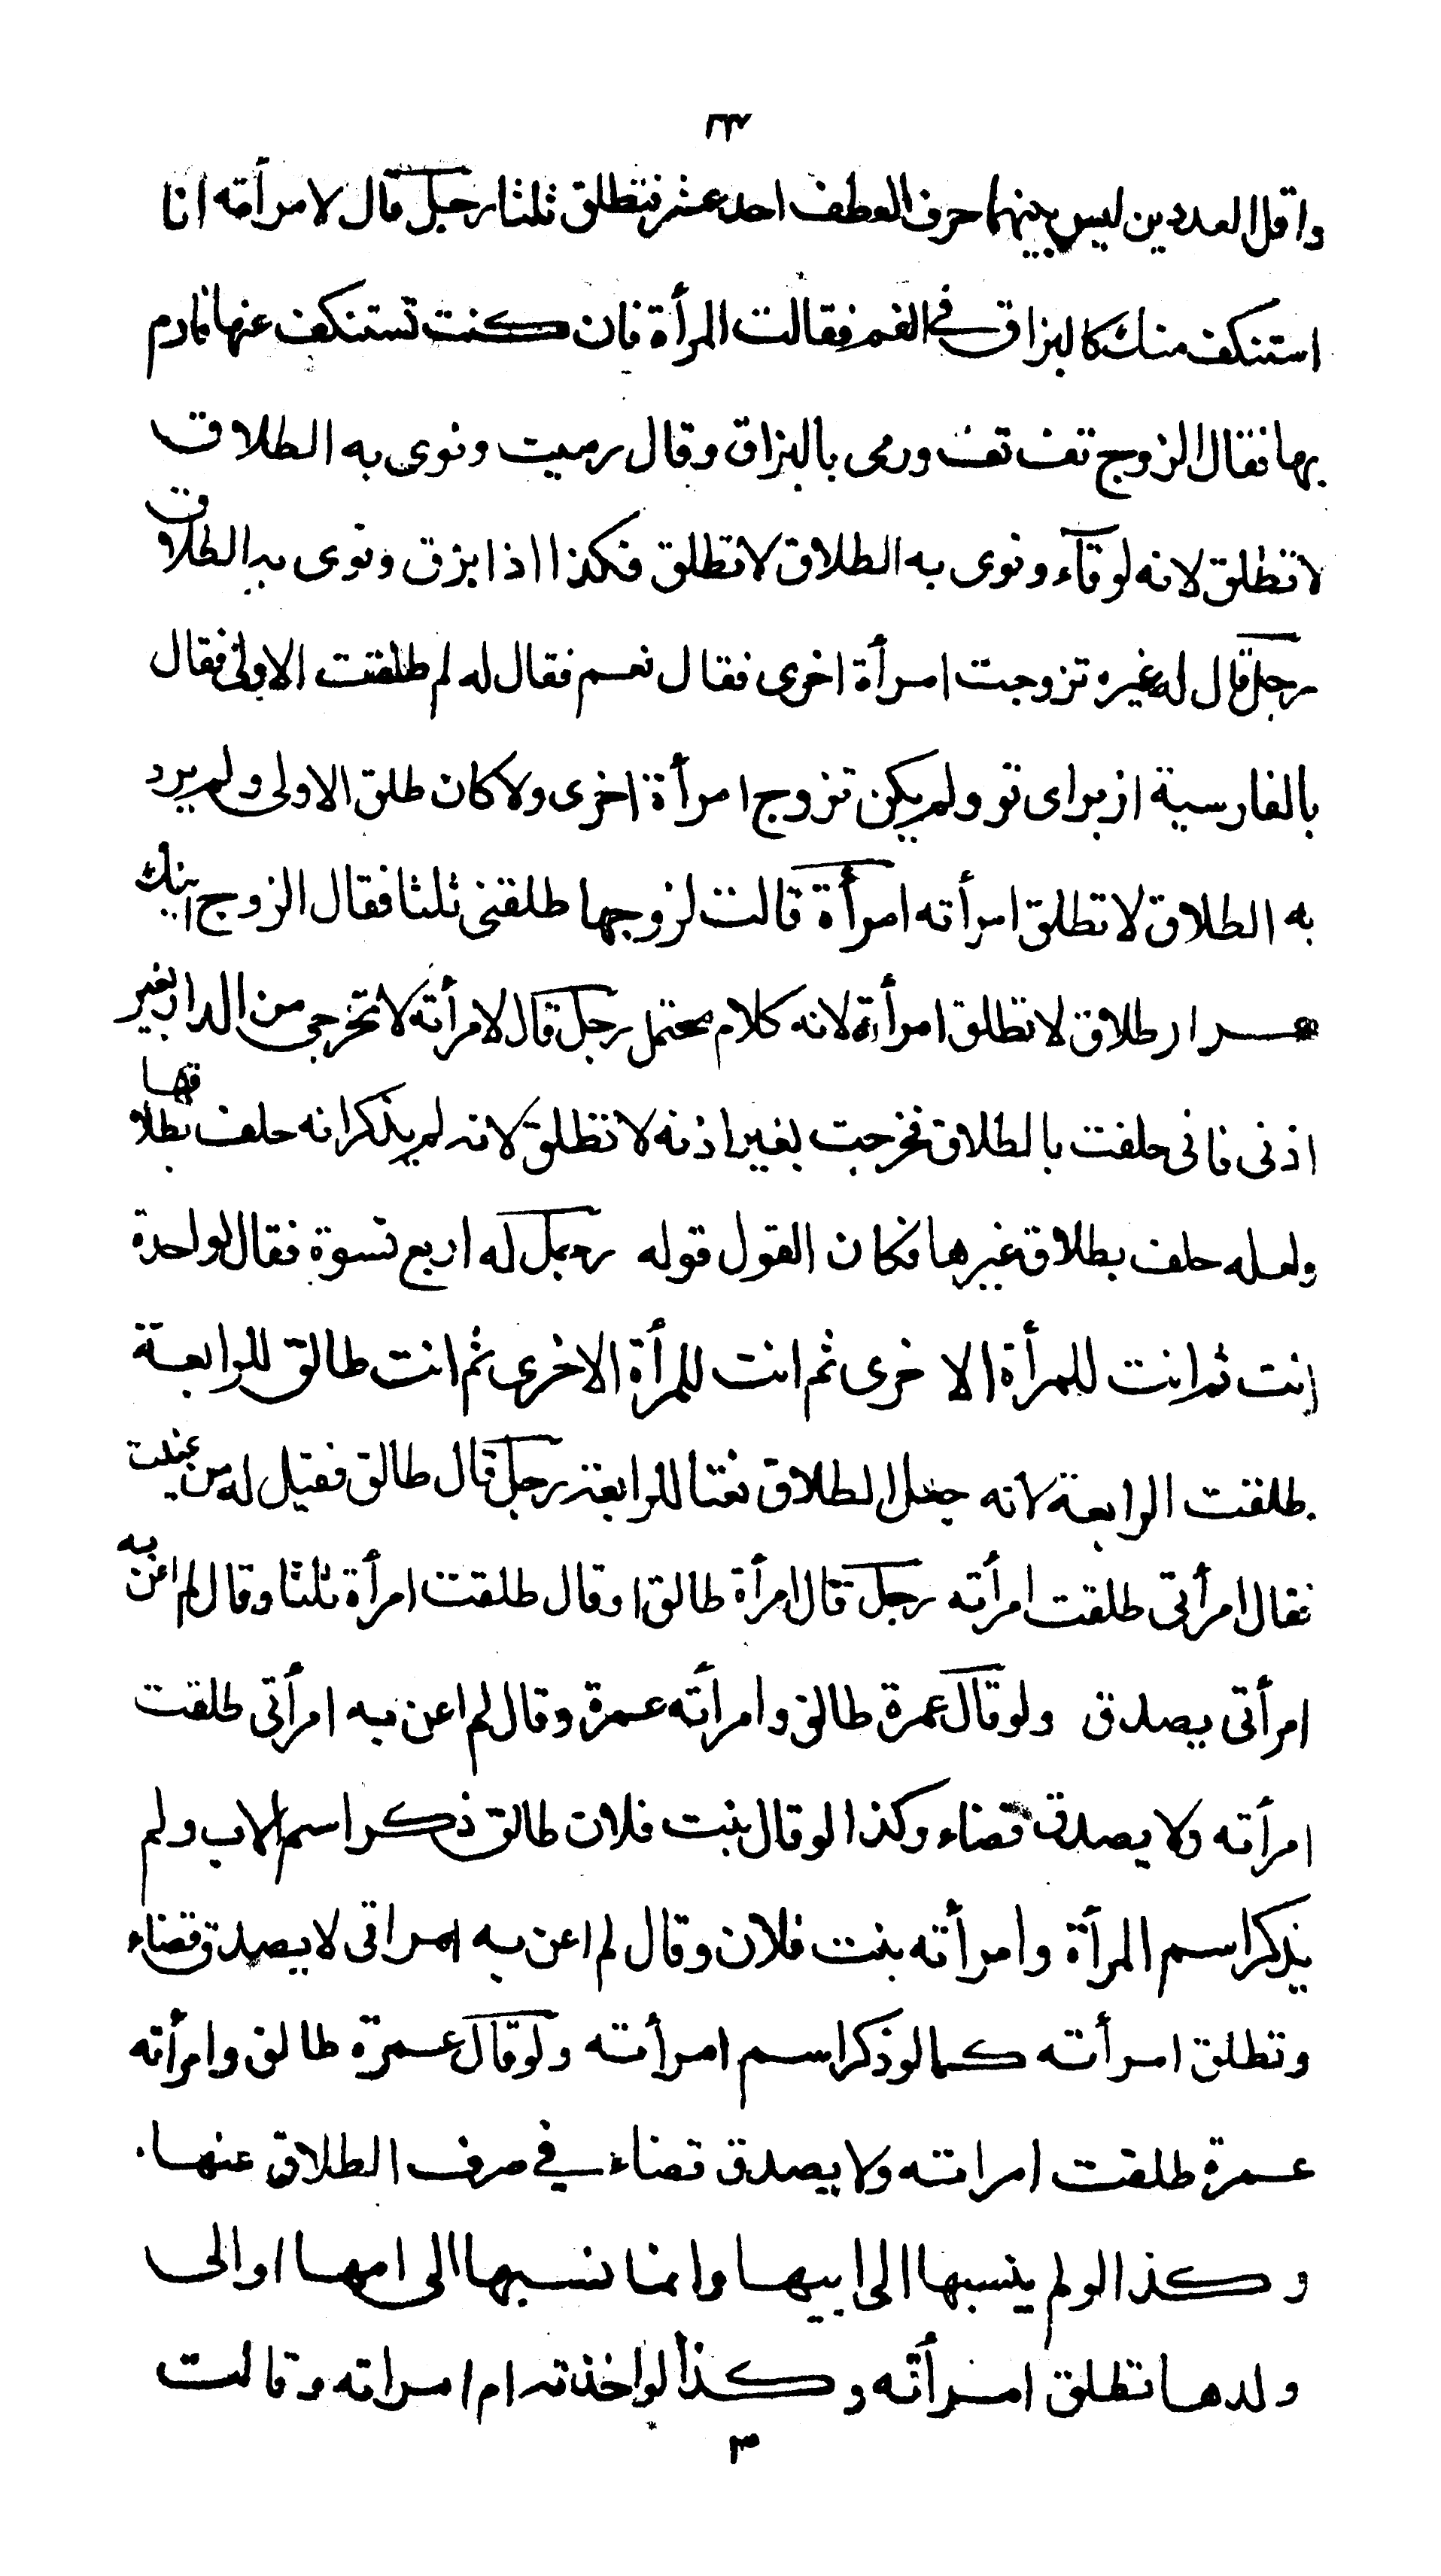 ٢٣٣
واقل العددين ليس بينهما حرف العطف احد عشر فتطلق ثلثا رجل قال لامرأته انا
استنكف منك كالبزاق في الفم فقالت المرأة فان كنت تستنكف عنها فارم
بها فقال الزوج تف تف ورمى بالبزاق وقال رميت ونوى به الطلاق
لا تطلق لانه لو قآء ونوى به الطلاق لا تطلق فكذا اذا بزق ونوى به الطلاق
رجل قال له غيره تزوجت امرأة اخرى فقال نعم فقال له لم طلقت الاولى فقال
بالفارسية از براى تو ولم يكن تزوج امرأة اخرى ولا كان طلق الاولى ولم يرد
به الطلاق لا تطلق امرأته امرأة قالت لزوجها طلقنى ثلثا فقال الزوج اينك
هزار طلاق لا تطلق امرأته لانه كلام محتمل رجل قال لامرأته لا تخرجى من الدار بغير
اذنى فانى حلفت بالطلاق فخرجت بغير اذنه لا تطلق لانه لم يذكر انه حلف بطلاقها
ولعله حلف بطلاق غيرها فكان القول قوله رجل له اربع نسوة فقال لواحدة
انت ثم انت للمرأة الاخرى ثم انت للمرأة الاخرى ثم انت طالق للرابعة
طلقت الرابعة لانه جعل الطلاق نعتا للرابعة رجل قال طالق فقيل له من عنيت
فقال امرأتى طلقت امرأته رجل قال امرأة طالق او قال طلقت امرأة ثلثا وقال لم اعن به
امرأتى يصدق ولو قال عمرة طالق وامرأته عمرة وقال لم اعن به امرأتى طلقت
امرأته ولا يصدق قضاء وكذا لو قال بنت فلان طالق ذكر اسم الاب ولم
يذكر اسم المرأة وامرأته بنت فلان وقال لم اعن به امراتى لا يصدق قضاء
وتطلق امرأته كما لو ذكر اسم امرأته ولو قال عمرة طالق وامرأته
عمرة طلقت امراته ولا يصدق قضاء في صرف الطلاق عنها
وكذا لو لم ينسبها الى ابيها وانما نسبها الى امها او الى
ولدها تطلق امرأته وكذا لو اخذته ام امراته وقالت
٣